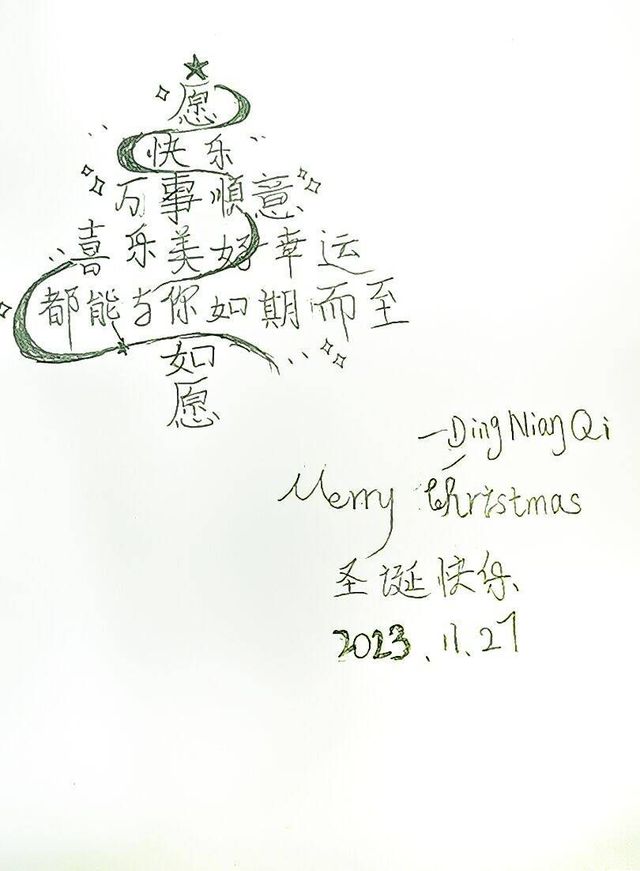 愿
快乐
万事顺意
喜乐美好幸运
都能与你如期而至
如
愿
—Ding Nian Qi
Merry Christmas
圣诞快乐
2023.11.27